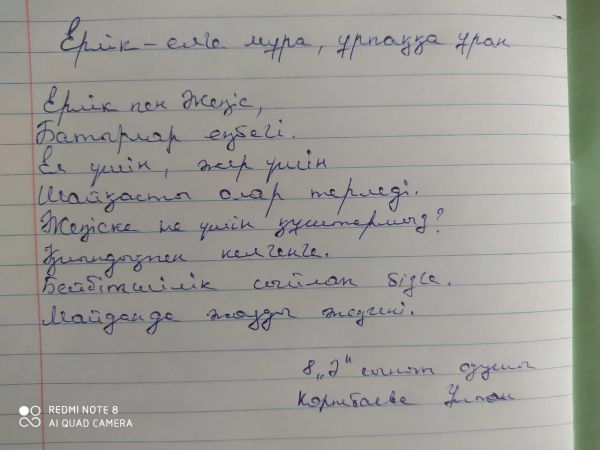 Ерлік – елге мұра, ұрпаққа ұран
Ерлік пен Жеңіс,
Батырлар еңбегі.
Ел үшін, жер үшін
Шайқасты олар терледі.
Жеңіске не үшін құштармыз?
Қиындықпен келгенге.
Бейбітшілік сыйлап бізге.
Майданда жауды жеңгені.
8 „Ә" сынып оқушы
REDMI NOTE 8
AI QUAD CAMERA